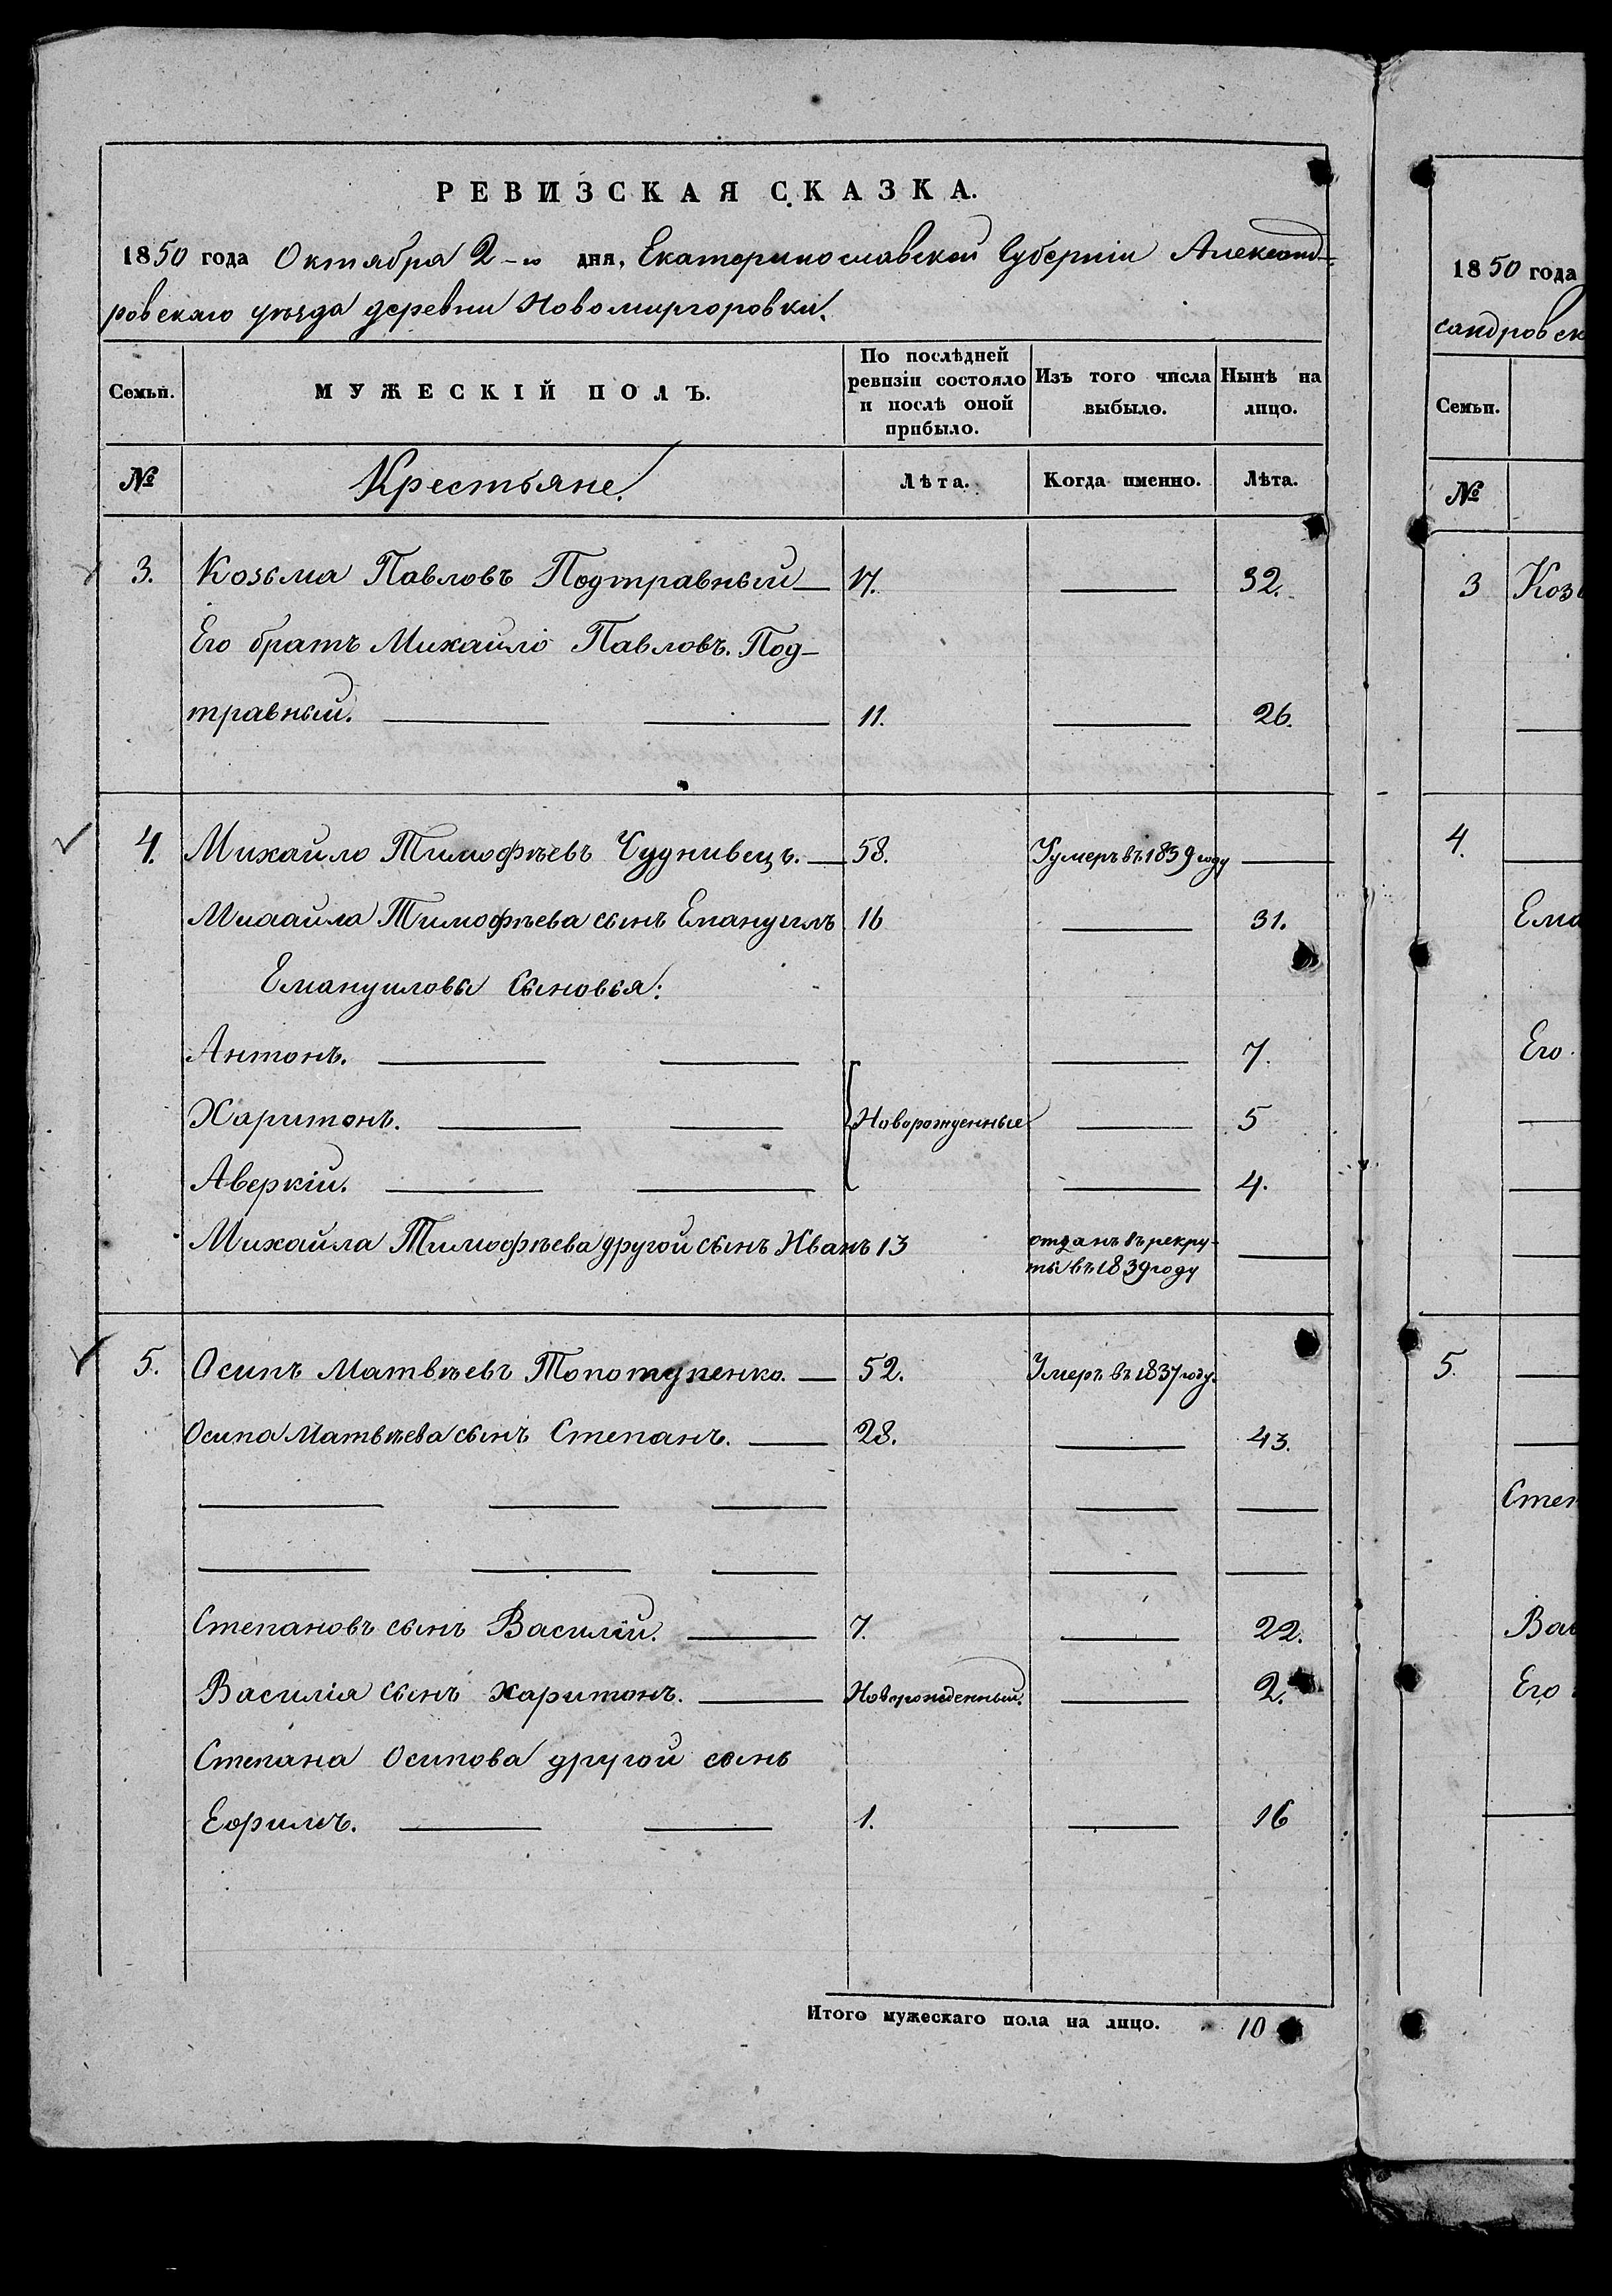 РЕВИЗСКАЯ СКАЗКА.
1850 года Октября 2-го дня, Екатеринославской Губерніи Александ-
ровскаго уѣзда деревни Новомиргоровки.
Семьи. МУЖЕСКІЙ ПОЛЪ. По послѣдней ревизіи состояло и послѣ оной прибыло. Изъ того числа выбыло. Нынѣ на лицо.
№ Крестьяне. Лѣта. Когда именно. Лѣта.
3. Козьма Павловъ Подтравный 17. 32.
Его братъ Михайло Павловъ. Под-
травный. 11. 26.
4. Михайло Тимофѣевъ Чуднивецъ. 58. Умеръ въ 1839 году
Михаила Тимофѣева сынъ Емануилъ 16 31.
Емануиловы сыновья:
Антонъ. 7.
Харитонъ. Новорожденные 5
Аверкій. 4.
Михайла Тимофѣева другой сынъ Иванъ 13 отданъ въ рекру-
ты въ 1839 году
5. Осипъ Матвѣевъ Топотупенко. 52. Умеръ въ 1837 году.
Осипа Матвѣева сынъ Степанъ. 28. 43.
Степановъ сынъ Василій. 7. 22.
Василія сынъ Харитонъ. Новорожденный. 2.
Степана Осипова другой сынъ
Ефимъ. 1. 16
Итого мужескаго пола на лицо. 10
1850 года
сандровск
Семьи.
№
3 Козь
4.
Ема
Его
5.
Степ
Вас
Его